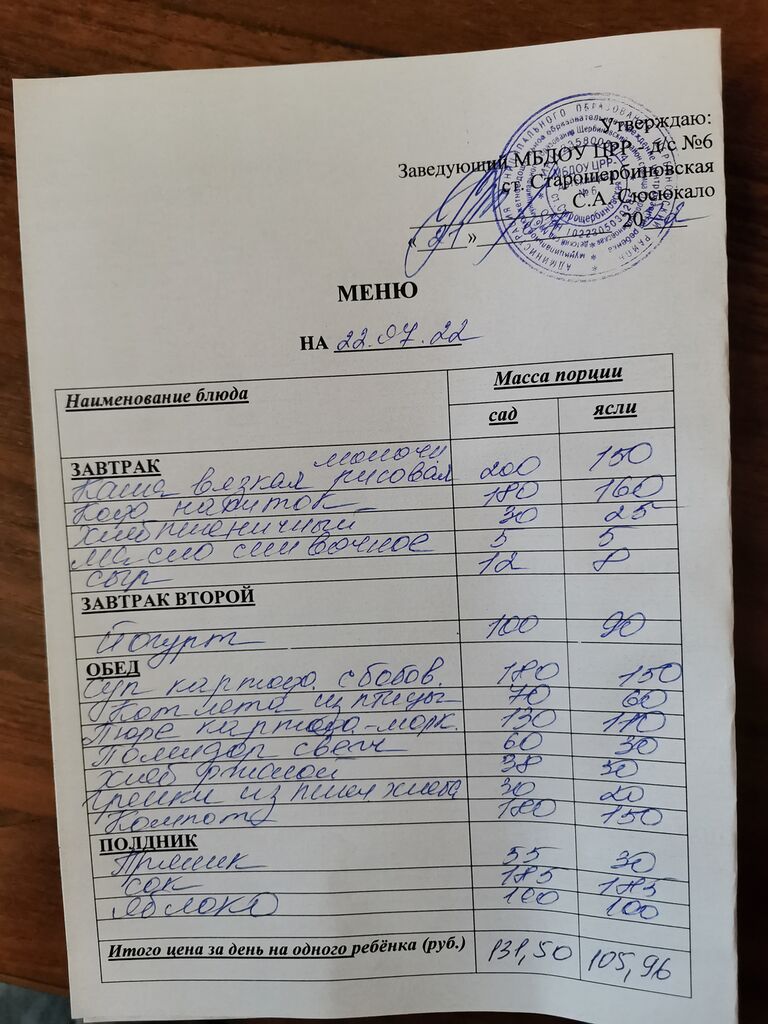 Утверждаю:
Заведующий МБДОУ ЦРР - д/с №6
ст. Старощербиновская
С.А. Сюсюкало
« 21 » 20 22
МЕНЮ
НА 22.07.22
Наименование блюда Масса порции
сад ясли
ЗАВТРАК
Каша вязкая молочн рисовая 200 150
напиток 180 160
Хлеб пшеничный 30 25
масло сливочное 5 5
сыр 12 8
ЗАВТРАК ВТОРОЙ
Йогурт 100 90
ОБЕД
Суп картоф. с бобов. 180 150
Котлета из птицы 70 60
Пюре картоф-морк. 130 110
Помидор свеж 60 30
Хлеб ржаной 38 30
Гренки из пшен хлеба 30 20
Компот 180 150
ПОЛДНИК
Пряник 55 30
сок 185 185
Яблоко 100 100
Итого цена за день на одного ребёнка (руб.) 131,50 105,96